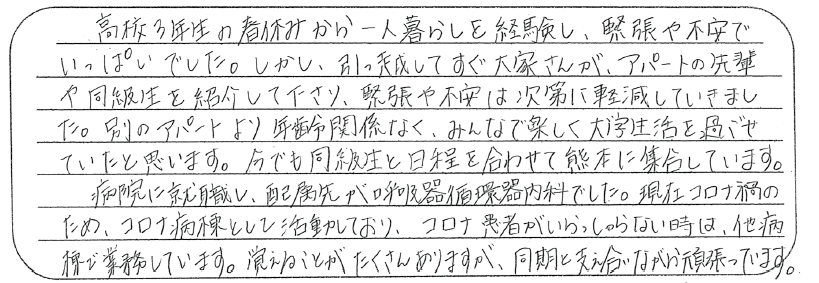 高校3年生の春休みから一人暮らしを経験し、緊張や不安で
いっぱいでした。しかし、引っ越してすぐ大家さんが、アパートの先輩
や同級生を紹介して下さり、緊張や不安は次第に軽減していきまし
た。別のアパートより年齢関係なく、みんなで楽しく大学生活を過ごせ
ていたと思います。今でも同級生と日程を合わせて熊本に集合しています。
病院に就職し、配属先が呼吸器循環器内科でした。現在コロナ禍の
ため、コロナ病棟として活動しており、コロナ患者がいらっしゃらない時は、他病
棟で業務しています。覚えることがたくさんありますが、同期と支え合いながら頑張っています。